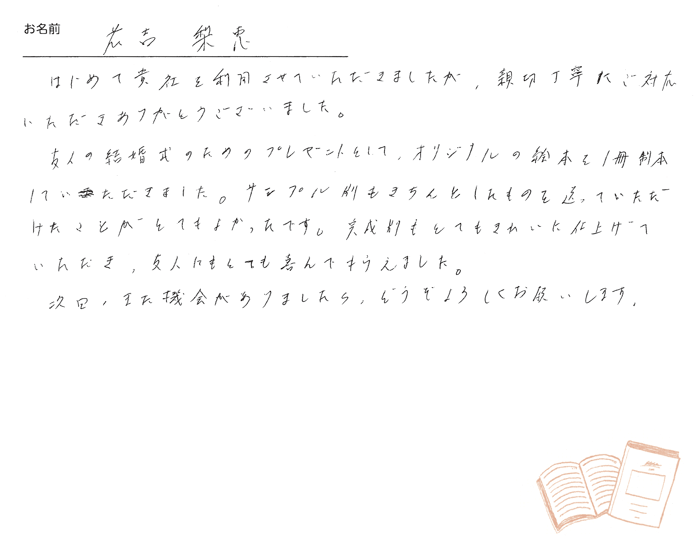 お名前 若吉 梨恵
はじめて貴社を利用させていただきましたが、親切丁寧にご対応
いただきありがとうございました。
友人の結婚式のためのプレゼントとして、オリジナルの絵本を1冊制本
していただきました。サンプル刷もきちんとしたものを送っていただ
けたことがとてもよかったです。完成刷もとてもきれいに仕上げて
いただき、友人にもとても喜んでもらえました。
次回、また機会がありましたら、どうぞよろしくお願いします。